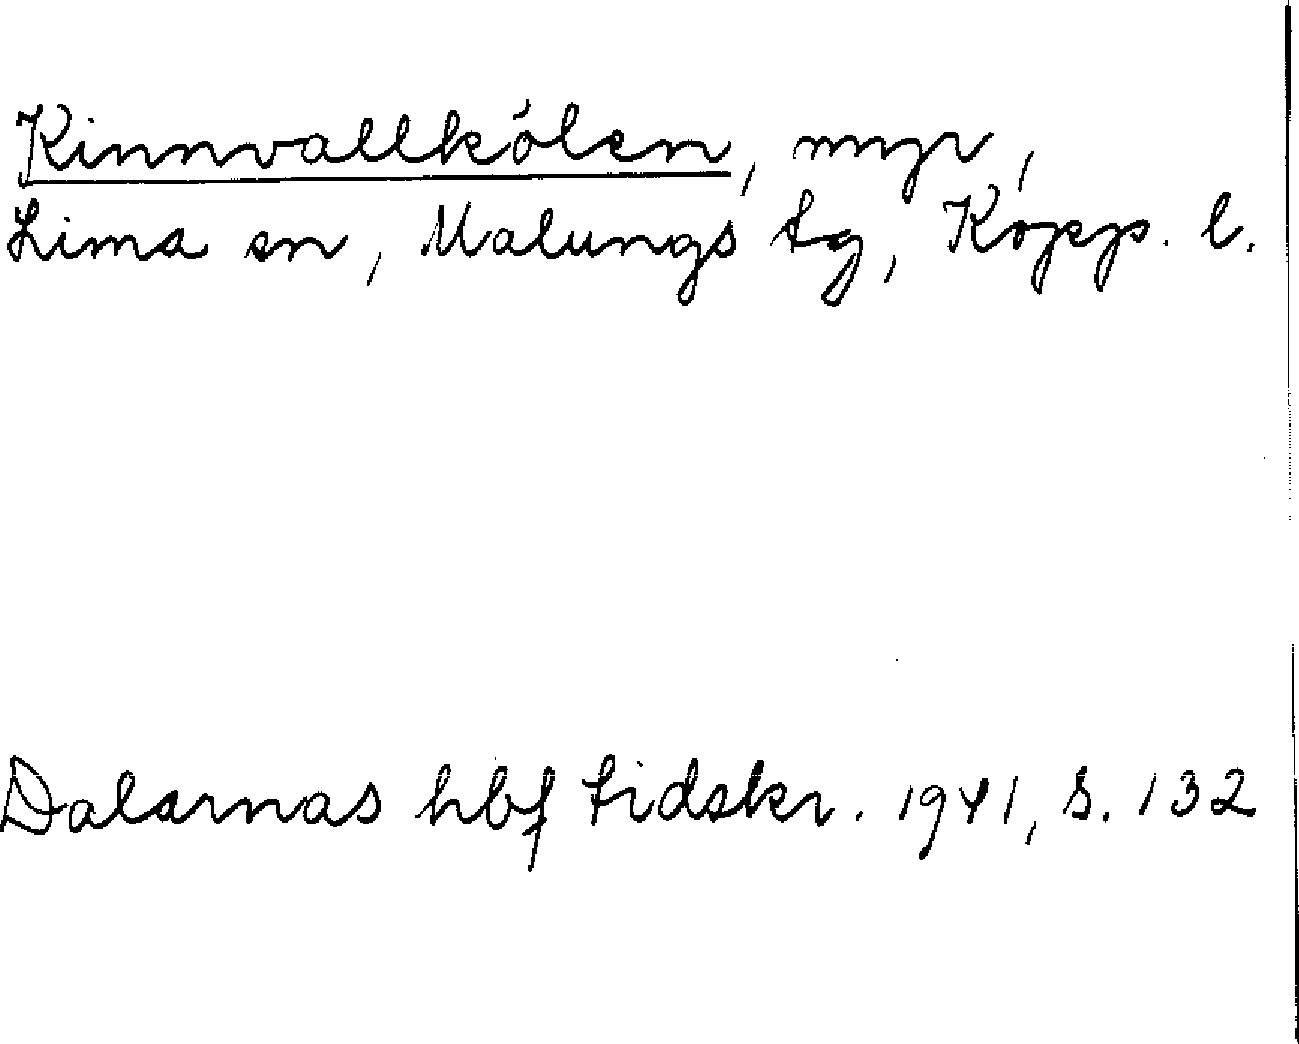 Kinnvallkölen, myr,
Lima sn, Malungs tg, Kopp. l.
Dalarnas hbf tidskr. 1941, s. 132